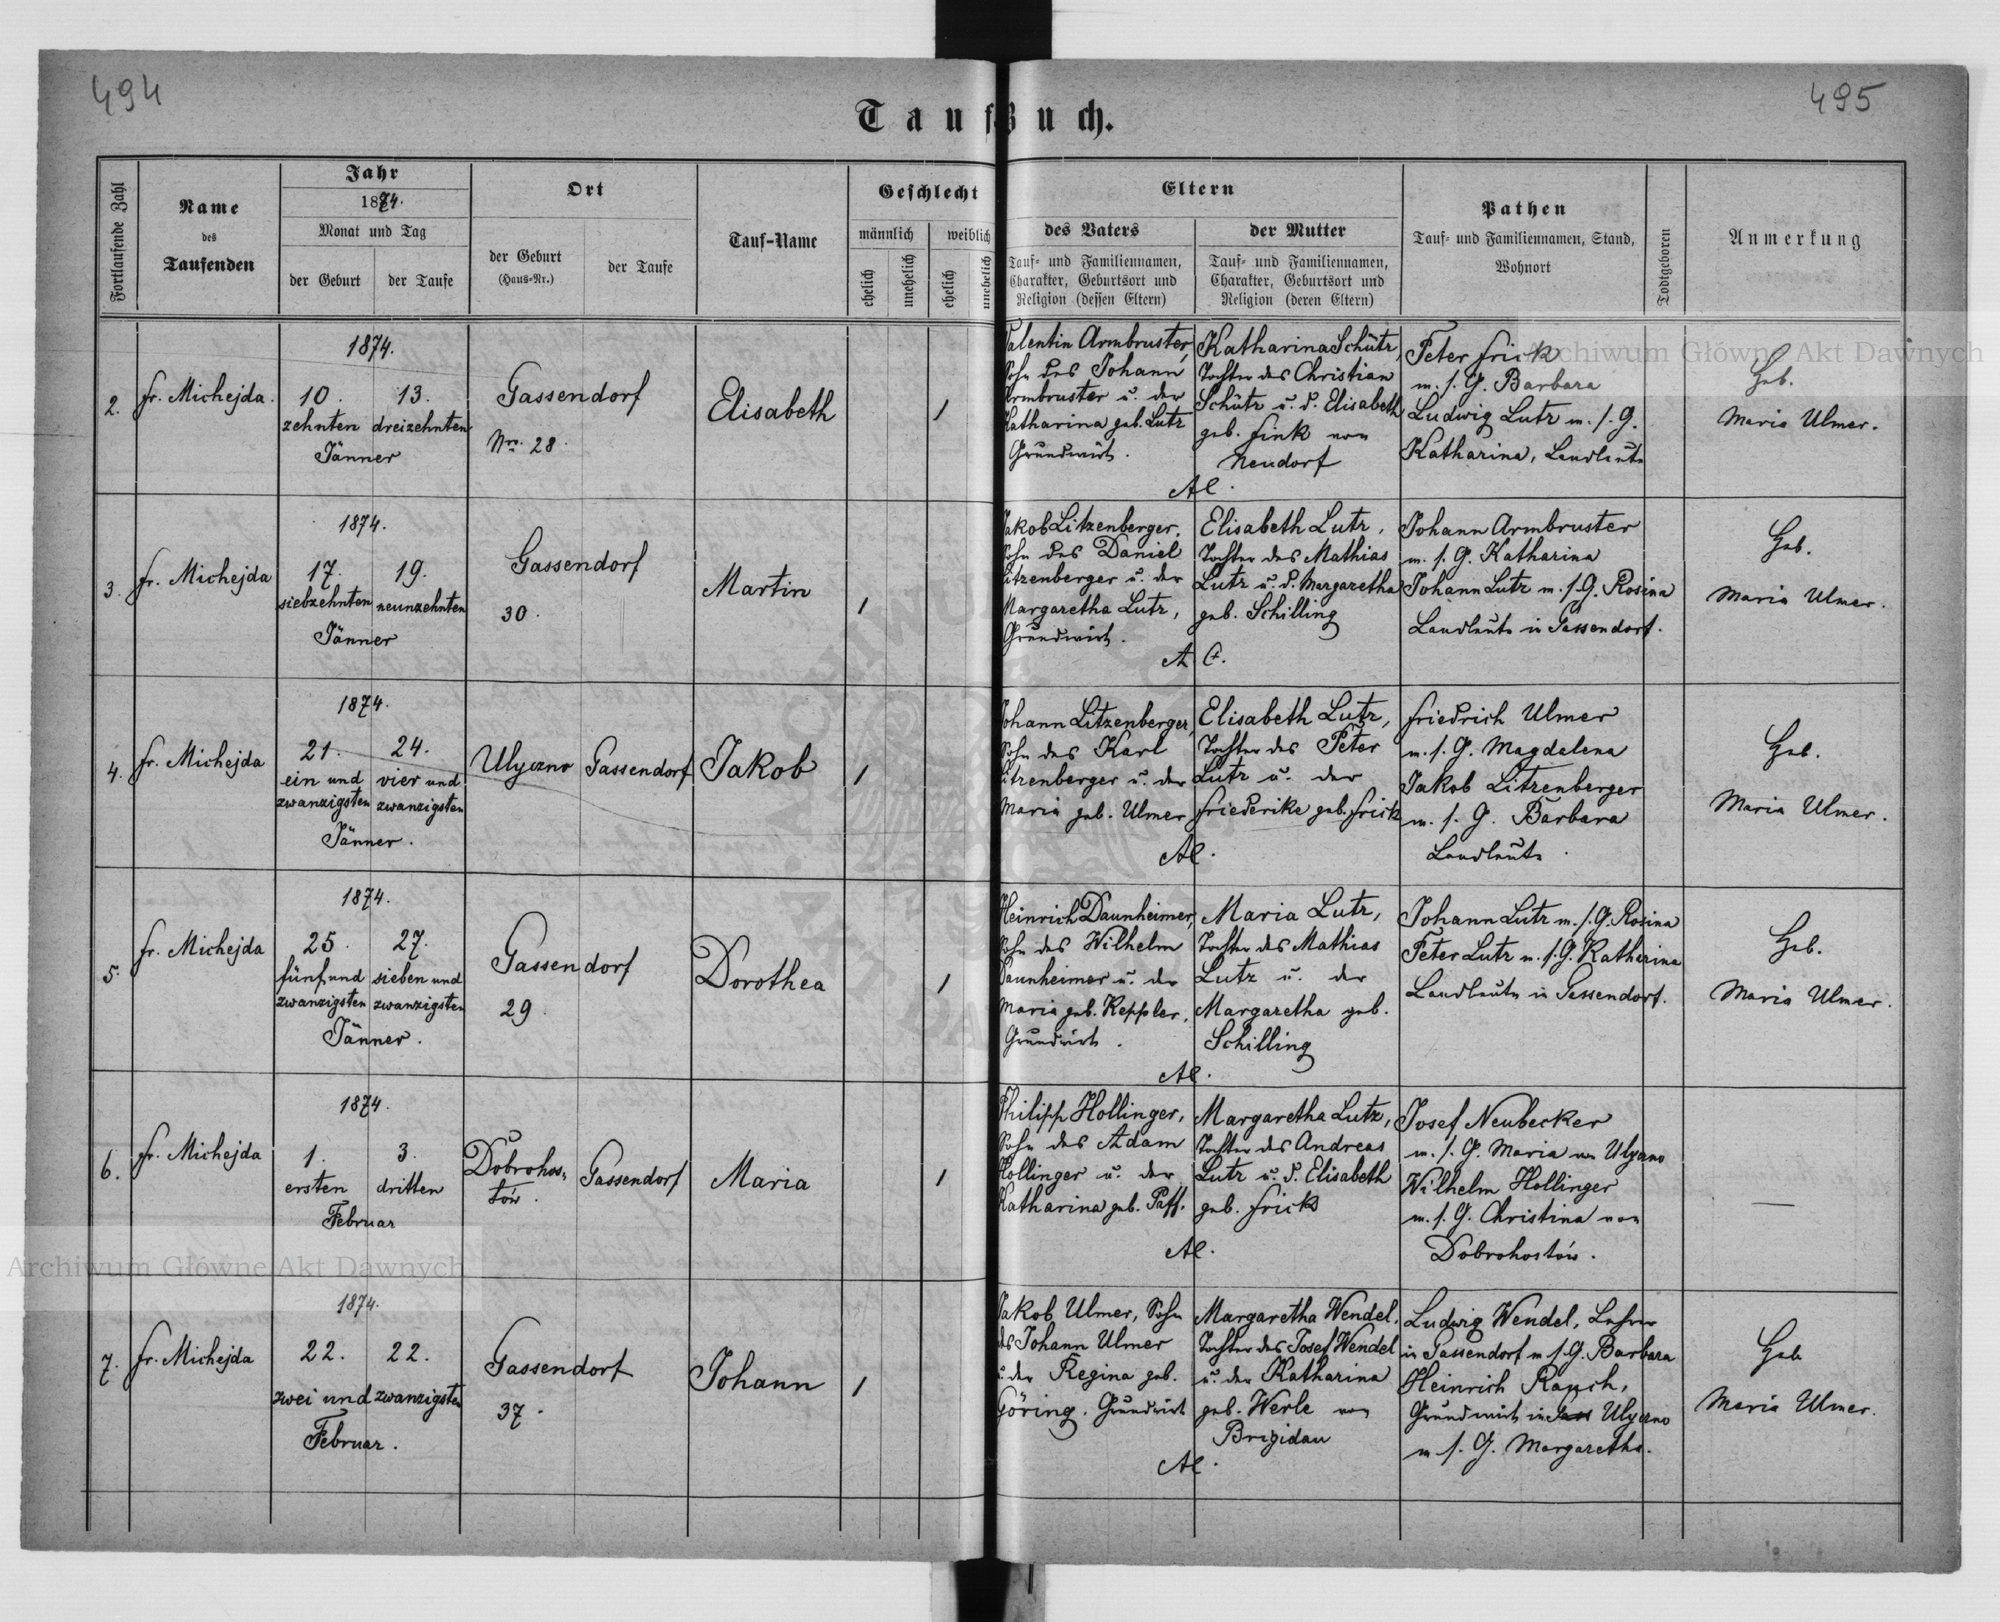 494
495
TaufBuch.
Fortlaufende Zahl
Name
des
Taufenden
Jahr
1874.
Monat und Tag
der Geburt
der Taufe
Ort
der Geburt
(Haus-Nr.)
der Taufe
Tauf-Name
Geschlecht
männlich
weiblich
ehelich
unehelich
ehelich
unehelich
Eltern
des Vaters
Tauf- und Familiennamen,
Charakter, Geburtsort und
Religion (dessen Eltern)
der Mutter
Tauf- und Familiennamen,
Charakter, Geburtsort und
Religion (deren Eltern)
Pathen
Tauf- und Familiennamen, Stand,
Wohnort
Todtgeboren
Anmerkung
2.
fr. Michejda.
1874.
10. 13.
zehnten dreizehnten
Jänner
Gassendorf
Nro. 28.
Elisabeth
1
Valentin Armbruster,
Sohn des Johann
Armbruster u. der
Katharina geb. Lutz
Grundwirt.
Katharina Schütz,
Tochter des Christian
Schütz u. d. Elisabeth
geb. Fink von
Neudorf
AC.
Peter Frick
m. s. G. Barbara
Ludwig Lutz m. s. G.
Katharina, Landleute
Geb.
Maria Ulmer.
3.
fr. Michejda
1874.
17. 19.
siebzehnten neunzehnten
Jänner
Gassendorf
30.
Martin
1
Jakob Litzenberger,
Sohn des Daniel
Litzenberger u. der
Margaretha Lutz,
Grundwirt.
Elisabeth Lutz,
Tochter des Mathias
Lutz u. d. Margaretha
geb. Schilling
A C.
Johann Armbruster
m. s. G. Katharina
Johann Lutz m. s. G. Rosina
Landleute in Gassendorf.
Geb.
Maria Ulmer.
4.
fr. Michejda
1874.
21. 24.
ein und vier und
zwanzigsten zwanzigsten
Jänner.
Ulyczno
Gassendorf
Jakob
1
Johann Litzenberger,
Sohn des Karl
Litzenberger u. der
Maria geb. Ulmer
Elisabeth Lutz,
Tochter des Peter
Lutz u. der
Friederike geb. Frick
AC.
Friedrich Ulmer
m. s. G. Magdalena
Jakob Litzenberger
m. s. G. Barbara
Landleute.
Geb.
Maria Ulmer.
5.
fr. Michejda
1874.
25. 27.
fünf und sieben und
zwanzigsten zwanzigsten
Jänner.
Gassendorf
29.
Dorothea
1
Heinrich Daunheimer,
Sohn des Wilhelm
Daunheimer u. der
Maria geb. Keppler,
Grundwirt.
Maria Lutz,
Tochter des Mathias
Lutz u. der
Margaretha geb.
Schilling
AC.
Johann Lutz m. s. G. Rosina
Peter Lutz m. s. G. Katharina
Landleute in Gassendorf.
Geb.
Maria Ulmer.
6.
fr. Michejda
1874.
1. 3.
ersten dritten
Februar
Dobrohos=
tów.
Gassendorf
Maria
1
Philipp Hollinger,
Sohn des Adam
Hollinger u. der
Katharina geb. Paff.
Margaretha Lutz,
Tochter des Andreas
Lutz u. d. Elisabeth
geb. Frick
AC.
Josef Neubecker
m. s. G. Maria von Ulyczno
Wilhelm Hollinger
m. s. G. Christina von
Dobrohostów.
—
7.
fr. Michejda
1874.
22. 22.
zwei und zwanzigsten
Februar.
Gassendorf
37.
Johann
1
Jakob Ulmer, Sohn
des Johann Ulmer
u. der Regina geb.
Göring. Grundwirt
Margaretha Wendel,
Tochter des Josef Wendel
u. der Katharina
geb. Werle von
Brigidau
AC.
Ludwig Wendel, Lehrer
in Gassendorf m. s. G. Barbara
Heinrich Rapsch,
Grundwirt in Gass Ulyczno
m. s. G. Margaretha.
Geb.
Maria Ulmer.
Archiwum Główne Akt Dawnych
Archiwum Główne Akt Dawnych